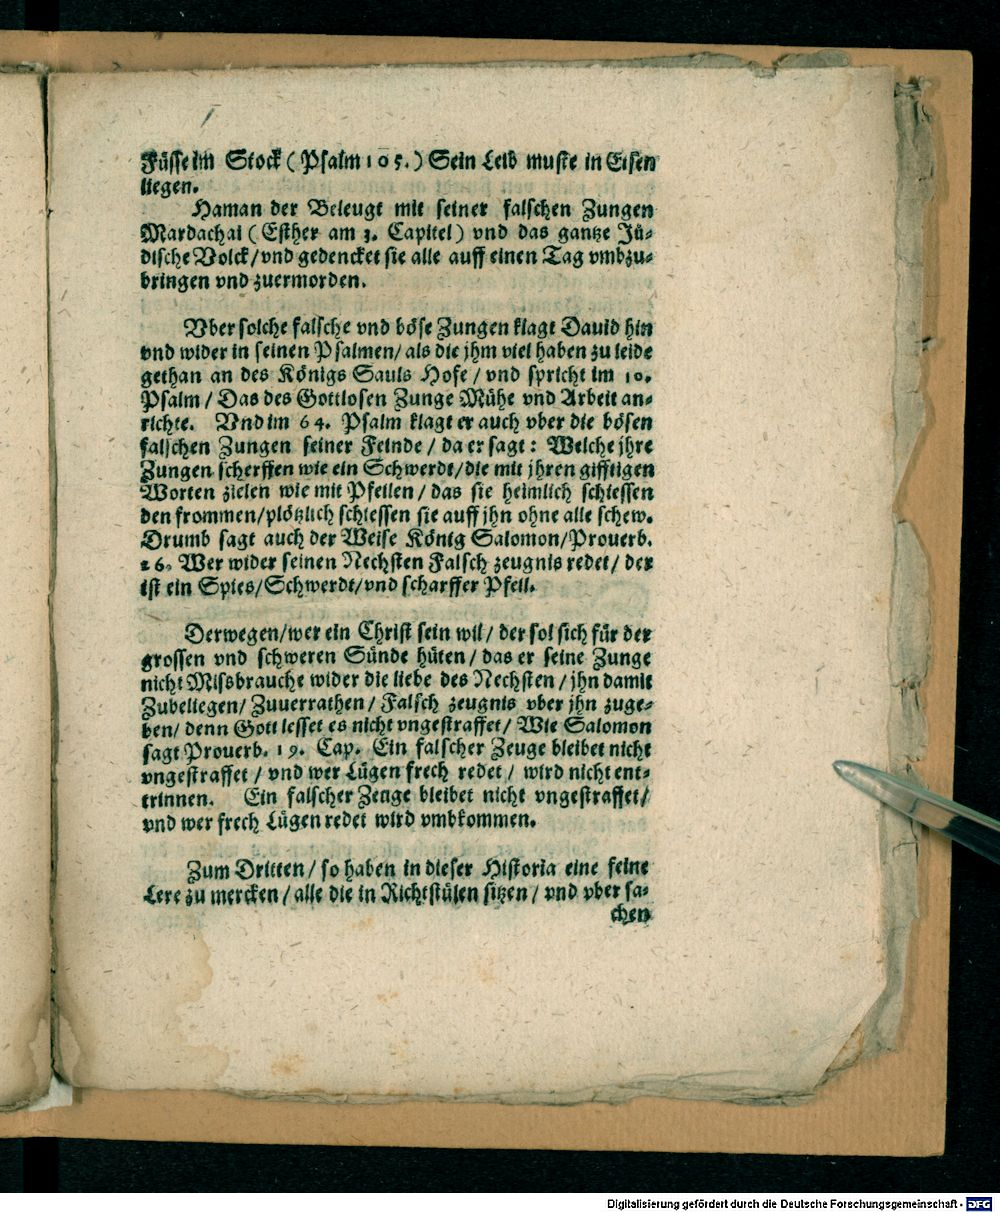 Füsse im Stock (Psalm 105.) Sein Leib muste in Eisen
liegen.
Haman der Beleugt mit seiner falschen Zungen
Mardachai (Esther am 3. Capitel) vnd das gantze Jü-
dische Volck/vnd gedencket sie alle auff einen Tag vmbzu-
bringen vnd zuermorden.
Vber solche falsche vnd böse Zungen klagt Dauid hin
vnd wider in seinen Psalmen/ als die jhm viel haben zu leide
gethan an des Königs Sauls Hofe / vnd spricht im 10.
Psalm / Das des Gottlosen Zunge Mühe vnd Arbeit an-
richte. Vnd im 64. Psalm klagt er auch vber die bösen
falschen Zungen seiner Feinde / da er sagt: Welche jhre
Zungen scherffen wie ein Schwerdt/die mit jhren gifftigen
Worten zielen wie mit Pfeilen / das sie heimlich schiessen
den frommen/plötzlich schiessen sie auff jhn ohne alle schew.
Drumb sagt auch der Weise König Salomon/Prouerb.
26. Wer wider seinen Nechsten Falsch zeugnis redet/ der
ist ein Spies/Schwerdt/vnd scharffer Pfeil.
Derwegen/wer ein Christ sein wil/ der sol sich für der
grossen vnd schweren Sünde hüten/ das er seine Zunge
nicht Missbrauche wider die liebe des Nechsten/ jhn damit
Zubeliegen/ Zuuerrathen/ Falsch zeugnis vber jhn zuge-
ben/ denn Gott lesset es nicht vngestraffet/ Wie Salomon
sagt Prouerb. 19. Cap. Ein falscher Zeuge bleibet nicht
vngestraffet / vnd wer Lügen frech redet / wird nicht ent-
trinnen. Ein falscher Zeuge bleibet nicht vngestraffet/
vnd wer frech Lügen redet wird vmbkommen.
Zum Dritten / so haben in dieser Historia eine feine
Lere zu mercken / alle die in Richtstülen sitzen / vnd vber sa-
chen
Digitalisierung gefördert durch die Deutsche Forschungsgemeinschaft - DFG